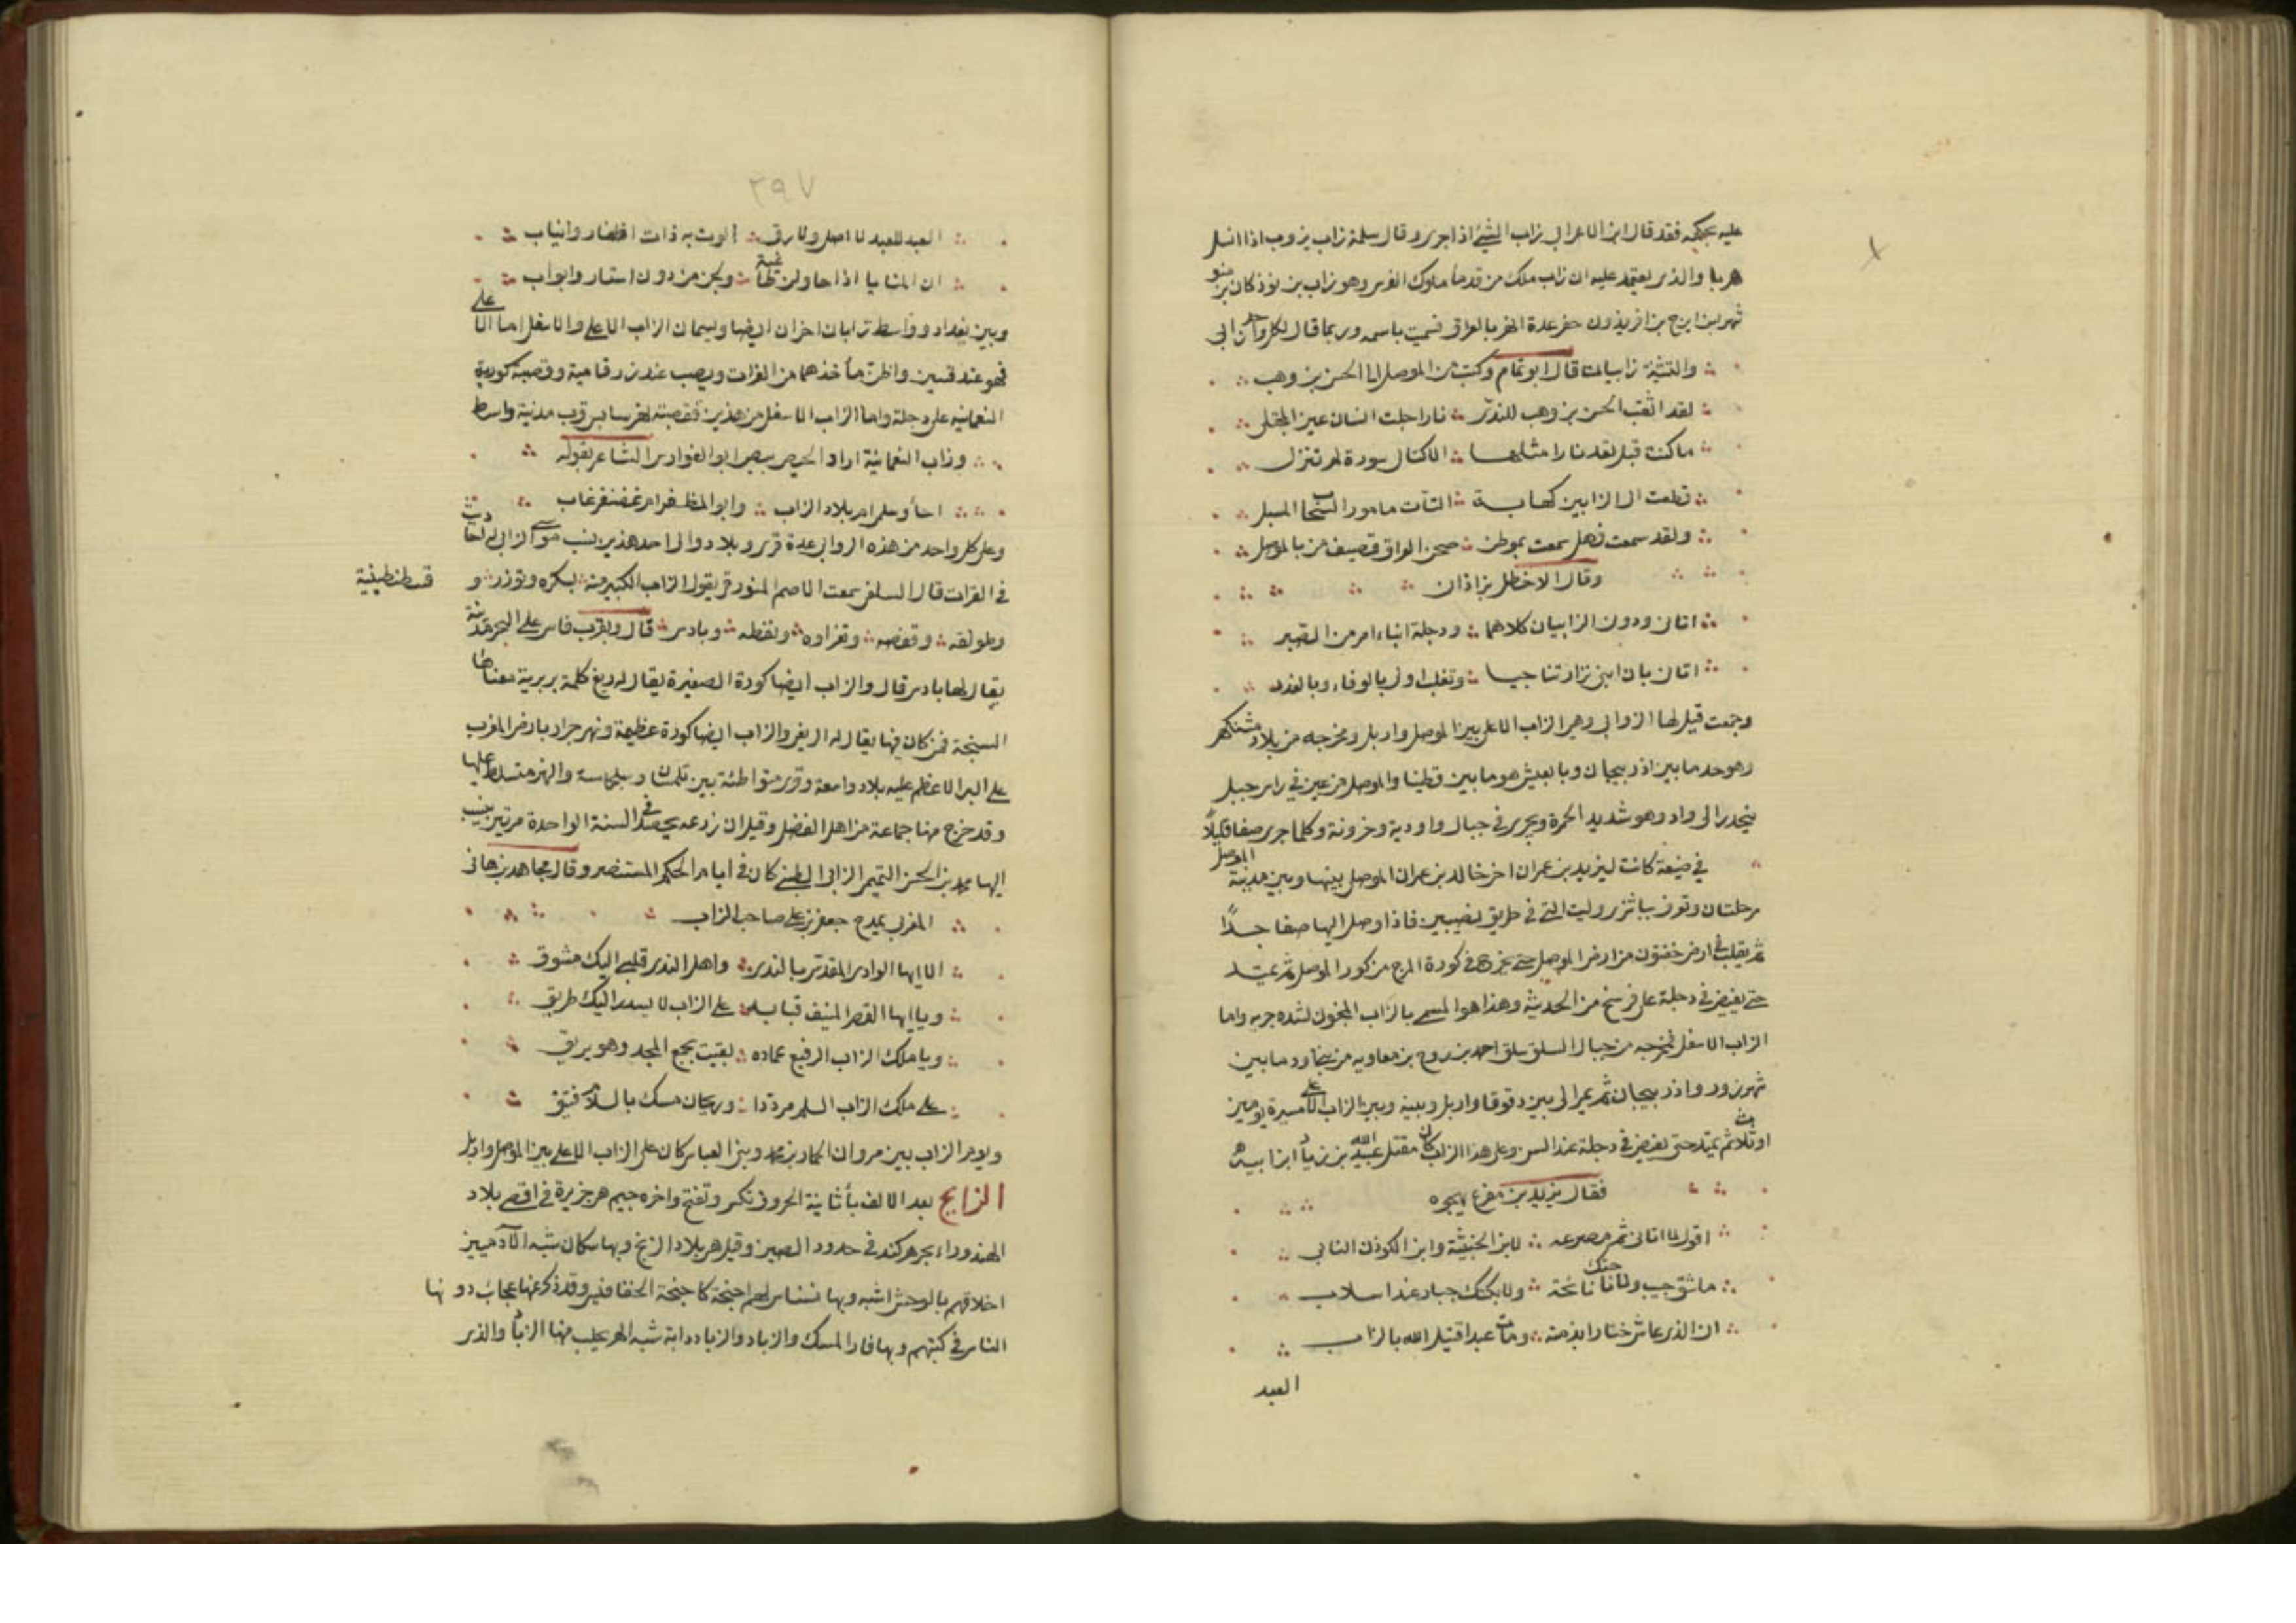 عليه بحكمه فقد قال ابن الاعرابى زاب الشئ اذا جرى وقال سلمة زاب يزوب اذا انسل
هربا والذى يعتمد عليه ان زاب ملك من قدماً ملوك الفرس وهو زاب بن نوذكان بن منو
شهر بن ايرج بن افريذون حفر عدة انهر بالعراق فسميت باسمه وربما قال لكل واحد زابى
والتثنية زابيان قال ابو تمام وكتب من الموصل الى الحسن بن وهب
لقد اثقب الحسن بن وهب للندى نارا جلت انسان عين المجتلى
ما كنت قبل تعد نارا مثلها الا كتال سورة لم تنزل
قطعت الى الزابيين كهابه التاث مامور السحاب المسبل
ولقد سمعت فهل سمعت بموطن صحن العراق قصيف من بالموصل
وقال الاخطل بزاذان
اتانى ودون الزابيان كلاهما ودجلة انباء امر من الصبر
اتانى بان ابنى نزار تناجيا وتغلب اولى بالوفاء وبالغدر
وجمعت قيل لها الزوابى وهى الزاب الاعلى بين الموصل واربل ومخرجه من بلاد مشتكهر
وهو حد ما بين اذربيجان وبابعيش هو ما بين قطينا والموصل من عين فى راس جبل
ينحدر الى واد وهو شديد الحمرة ويجرى فى جبال واودية وخزونة وكلما جرى صفا قليلاً
فى ضيعة كانت ليزيد بن عمران اخى خالد بن عمران الموصلى بينها وبين مدينة الموصل
مرحلتان وتعرف بباشزى وليت التى فى طريق نصيبين فاذا وصل اليها صفا جداً
ثم يقلب فى ارض خفتون من ارض الموصل حتى يخرج فى كورة المرج من كور الموصل ثم يمتد
حتى يفيض فى دجلة على فرسخ من الحديثة وهذا هو المسمى بالزاب المجنون لشدة جريه واما
الزاب الاسفل فمخرجه من جبال السلق سلق احمد بن روح بن معاويه من بنى اود ما بين
شهرزور واذربيجان ثم يمر الى بين دقوقا واربل وبينه وبين الزاب الاعلى مسيرة يومين
او ثلاث ثم يمتد حتى يفيض فى دجلة عند السن وعلى هذا الزاب كان مقتل عبيد الله بن زياد ابن ابيه
فقال يزيد بن مفرغ يهجوه
اقول لما اتانى ثم مصرعه لابن الخبيثة وابن الكوذن النابى
ما شق جيب ولا ناحتك نائحة ولا بكتك جياد عند اسلاب
ان الذى عاش ختارا بذمته ومات عبدا قتيل الله بالزاب
العبد
٢٩٧
العبد للعبد لا اصل ولا رق الوت به ذات اظفار وانياب
ان المنايا اذا حاولن طاغية ولجن من دون استار وابواب
وبين بغداد وواسط زابان اخران ايضا ويسميان الزاب الاعلى والاسفل اما الاعلى
فهو عند قسين واظن مأخذهما من الفرات ويصب عند زرقامية وقصبة كورته
النعمانيه على دجلة واما الزاب الاسفل من هذين فقصبته نهر سابس قرب مدنية واسط
وزاب النعمانية اراد الحيص بيص ابو الفوارس الشاعر بقوله
اجأ وسلمى ام بلاد الزاب وابو المظفر ام غضنفر غاب
وعلى كل واحد من هذه الزوابى عدة قرى وبلاد والى احد هذين ينسب موسى الزابى له احاديث
فى القرات قال السلفى سمعت الاصم المنورقى يقول الزاب الكبير منه بسكره وتوزر و قسطنطينية
وطولقه وقفصه ونفزاوه ونفطه وبادس قال وبقرب فاس على البحر مدينة
يقال لها بادس قال والزاب ايضا كورة الصغيرة يقال له ريغ كلمة بربرية معناها
السبخة فمن كان فيها يقال له الريغى والزاب ايضا كورة عظيمة ونهر جرار بارض المغرب
على البر الاعظم عليه بلاد واسعة وقرى متواطئة بين تلمسان وسلجماسة والنهر متسلط عليها
وقد خرج منها جماعة من اهل الفضل وقيل ان زرعه يحصد فى السنة الواحدة مرتين ينسب
اليها محمد بن الحسن التميمى الزابى الطبنى كان فى ايام الحكم المستنصر وقال مجاهد بن هانى
المغربى يمدح جعفر بن على صاحب الزاب
الا ايها الوادى المقدس بالندى واهل الندى قلبى اليك مشوق
ويا ايها القصر المنيف قبابه على الزاب لا يسدد اليك طريق
ويا ملك الزاب الرفيع عماده بقيت بجمع المجد وهو بريق
على ملك الزاب السلم مرددا وريحان مسك بالسلام فتيق
ويوم الزاب بين مروان الحمار بن محمد وبنى العباس كان على الزاب الاعلى بين الموصل واربل
الزابج بعد الالف بأ ثانية الحروف تكسر وتفتح واخره جيم هى جزيرة فى اقصى بلاد
الهند وراء بحر هركند فى حدود الصين وقيل هى بلاد الزنج وبها سكان شبه الآدميين
اخلاقهم بالوحش اشبه وبها نسناس لهم اجنحة كاجنحة الخفافيش وقد ذكر عنها عجائب دونها
الناس فى كتبهم وبها فار المسك والزباد والزباد دابة شبه الهر يجلب منها الزباد والذى